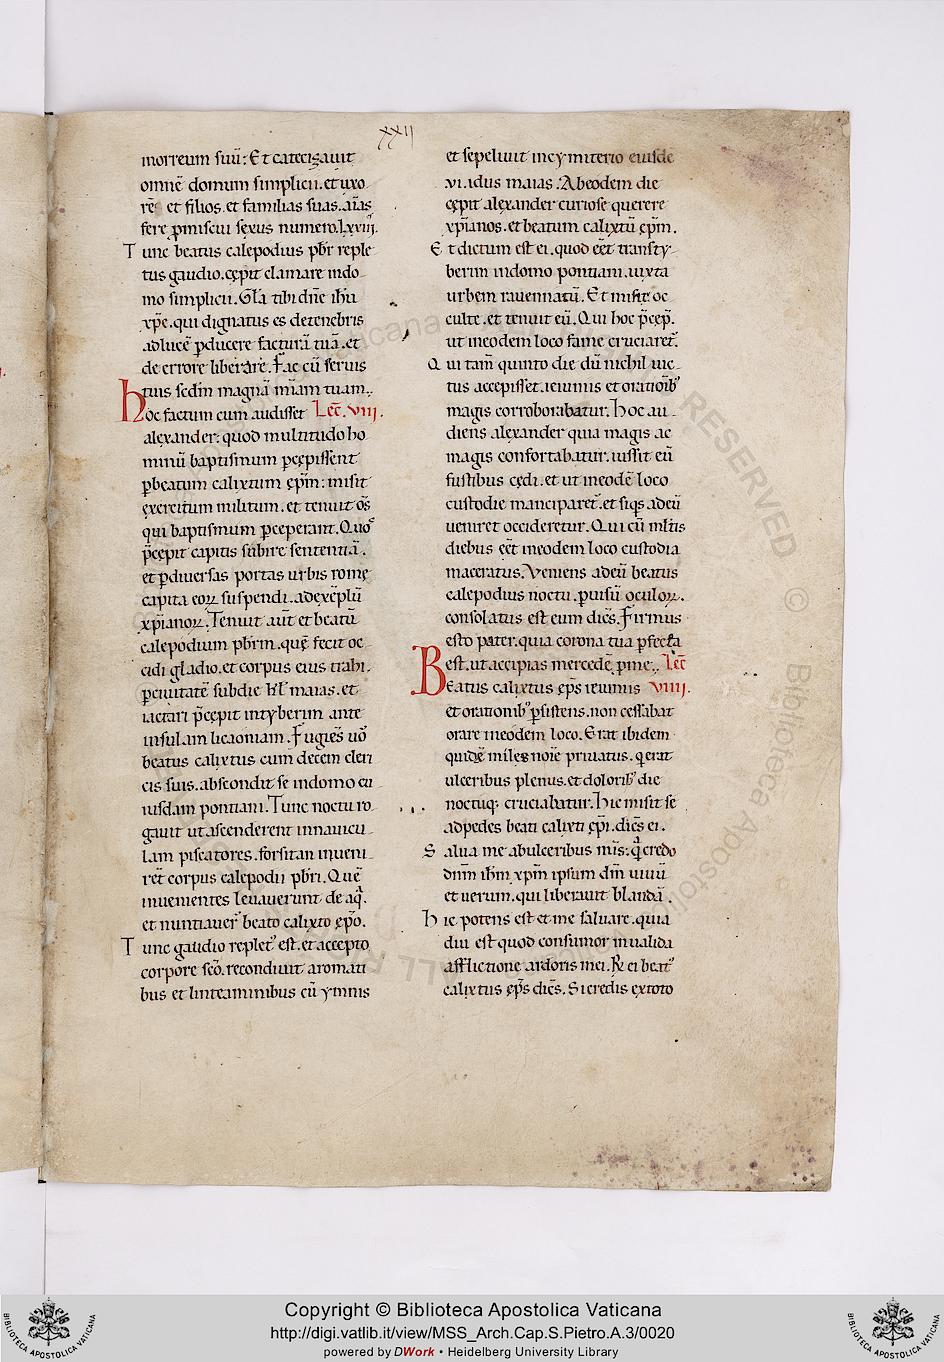 XXII
morreum suū: Et catecizauit
omnē domum simplicii. et uxo
rē et filios. et familias suas. aīas
fere pmiscui sexus numero. lxviii.
Tunc beatus calepodius pbr reple
tus gaudio. cępit clamare indo
mo simplicii. Gła tibi dn̄e ihū
xpē. qui dignatus es detenebris
adlucē pducere facturā tuā. et
de errore liberare. Fac cū seruis
tuis sedm̄ magnā m̄iam tuam.
Hoc factum cum audisset Lec̄. viii.
alexander: quod multitudo ho
minū baptismum pcępissent
pbeatum calixtum ep̄m: misit
exercitum militum. et tenuit oс̄s
qui baptismum pceperant. Quos
p̄cępit capitis subire sententiā.
et pdiuersas portas urbis romę
capita eoꝝ suspendi. adexēplū
xp̄ianoꝝ. Tenuit aūt et beatū
calepodium pbrm. quē fecit oc
cidi gladio. et corpus eius trahi.
pciuitatē subdie kł maias. et
iactari p̄cępit intyberim ante
insulam licaoniam. Fugiens uō
beatus calixtus cum decem cleri
cis suis. abscondit se indomo eu
iusdam pontiani. Tunc noctu ro
gauit ut ascenderent innauicu
lam piscatores. forsitan inueni
rēt corpus calepodii pbri. Quē
inuenientes leuauerunt de aq̄.
et nuntiauer̄ beato calixto ep̄o.
Tunc gaudio replet᾽ est. et accepto
corpore sc̄o. recondiuit aromati
bus et linteaminibus cū ymnis
et sepeliuit incymiterio eiusdē
vi. idus maias. Abeodem die
cępit alexander curiose querere
xp̄ianos. et beatum calixtū ep̄m.
Et dictum est ei. quod eēt transty
berim indomo pontiani. iuxta
urbem rauennatū. Et misit oc
culte. et tenuit eū. Qui hoc p̄cęp̄.
ut ineodem loco fame cruciaret᾽.
Qui tam̄ quinto die dū nichil uic
tus accepisset. ieiuniis et orationib᾽
magis corroborabatur. Hoc au
diens alexander quia magis ac
magis confortabatur. iussit eū
fustibus cędi. et ut ineodē loco
custodie manciparet᾽. et siqs adeū
ueniret occideretur. Qui cū mītis
diebus eēt ineodem loco custodia
maceratus. Veniens adeū beatus
calepodius noctu. puisū oculoꝝ.
consolatus est eum dicēs. Firmus
esto pater. quia corona tua pfecta
est. ut accipias mercedē pme. Lec̄
Beatus calixtus ep̄s ieiuniis viiii.
et orationib᾽ psistens. non cessabat
orare ineodem loco. Erat ibidem
quidē miles noīe priuatus. q erat
ulceribus plenus. et dolorib᾽ die
noctuq; cruciabatur. Hic misit se
adpedes beati calixti ep̄i. dicēs ei.
Salua me abulceribus m̄is: q̄ credo
dn̄m ihm̄ xp̄m ipsum dm̄ uiuū
et uerum. qui liberauit blandā.
Hic potens est et me saluare. quia
diu est quod consumor inualida
afflictione ardoris mei. R̄ ei beat᾽
calixtus ep̄s dicēs. Si credis extoto
Copyright © Biblioteca Apostolica Vaticana
http://digi.vatlib.it/view/MSS_Arch.Cap.S.Pietro.A.3/0020
powered by DWork • Heidelberg University Library